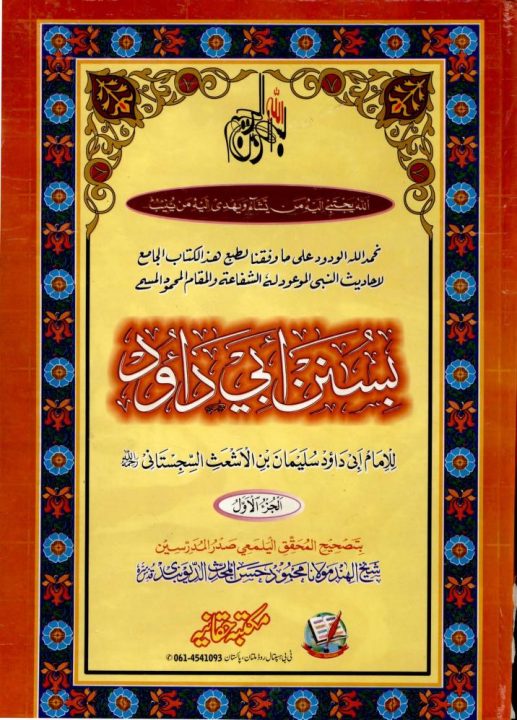 بسم الله الرحمن الرحيم
الله يجتبى اليه من يشاء ويهدى اليه من ينيب
نحمد الله الودود على ما وفقنا لطبع هذا الكتاب الجامع
لاحاديث النبى الموعود له الشفاعة والمقام المحمود المسمى
بسُنن أبي داؤد
للإمام ابى داؤد سليمان بن الاشعث السجستانى رحمه الله
الجزء الاول
بتصحيح المحقق اليلمعي صدر المدرسين
شيخ الهند مولانا محمود حسن المحدث الديوبندى قدس سره
مكتبه حقانيه
ٹی بی ہسپتال روڈ ملتان، پاکستان 061-4541093 ✆